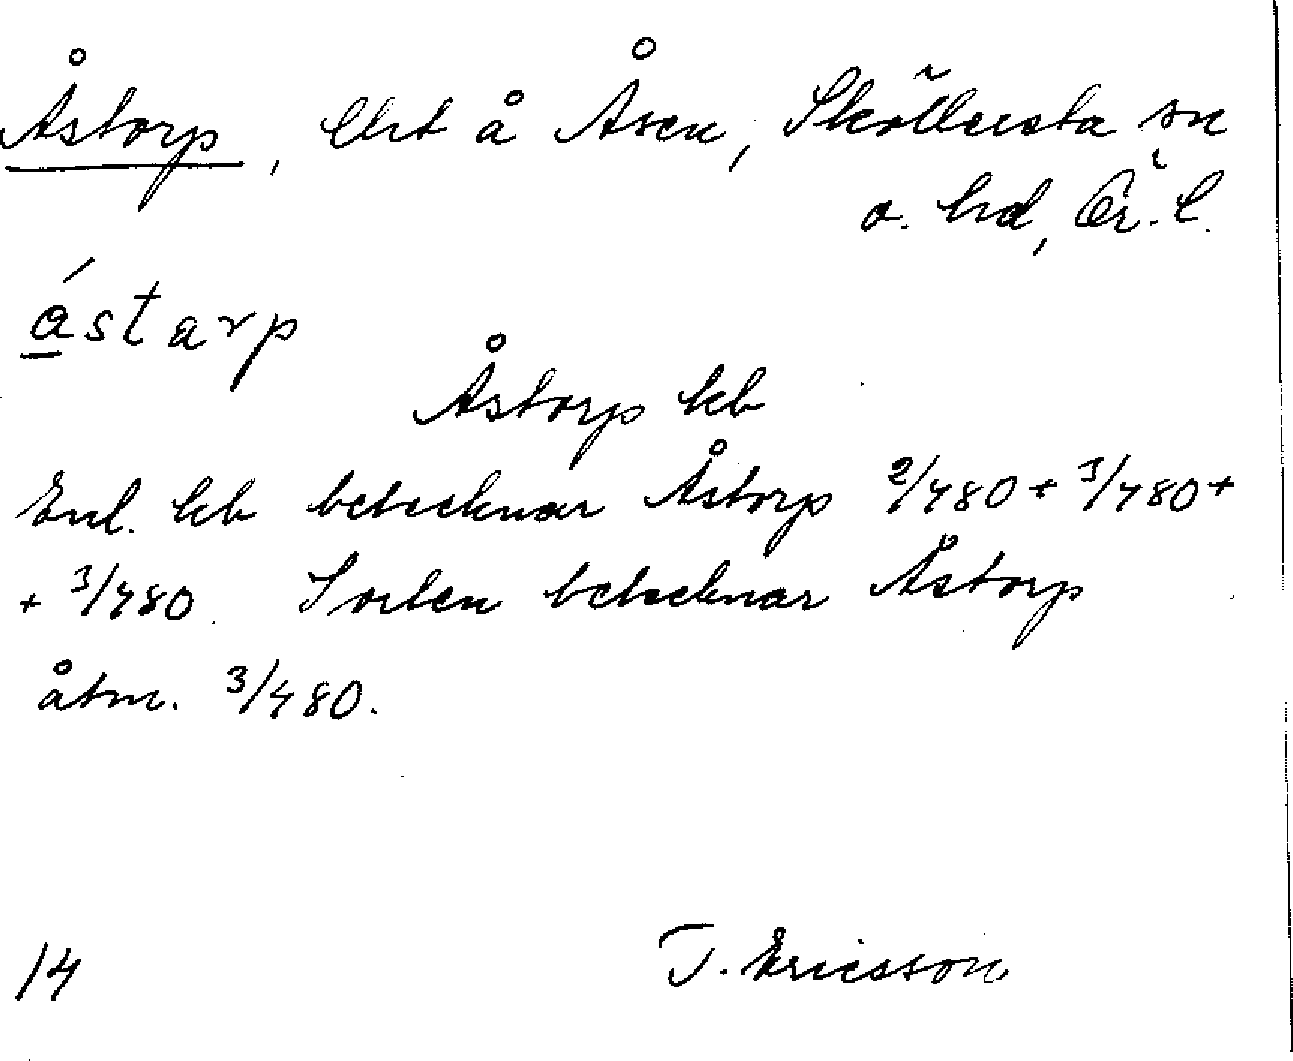 Åstorp, lht å Åsen, Sköllersta sn
o. hd, Ör. l.
åstarp
Åstorp kb
Enl. kb betecknar Åstorp 2/480 + 3/480 +
+ 3/480. I orten betecknar Åstorp
åtm. 3/480.
14 T. Ericsson